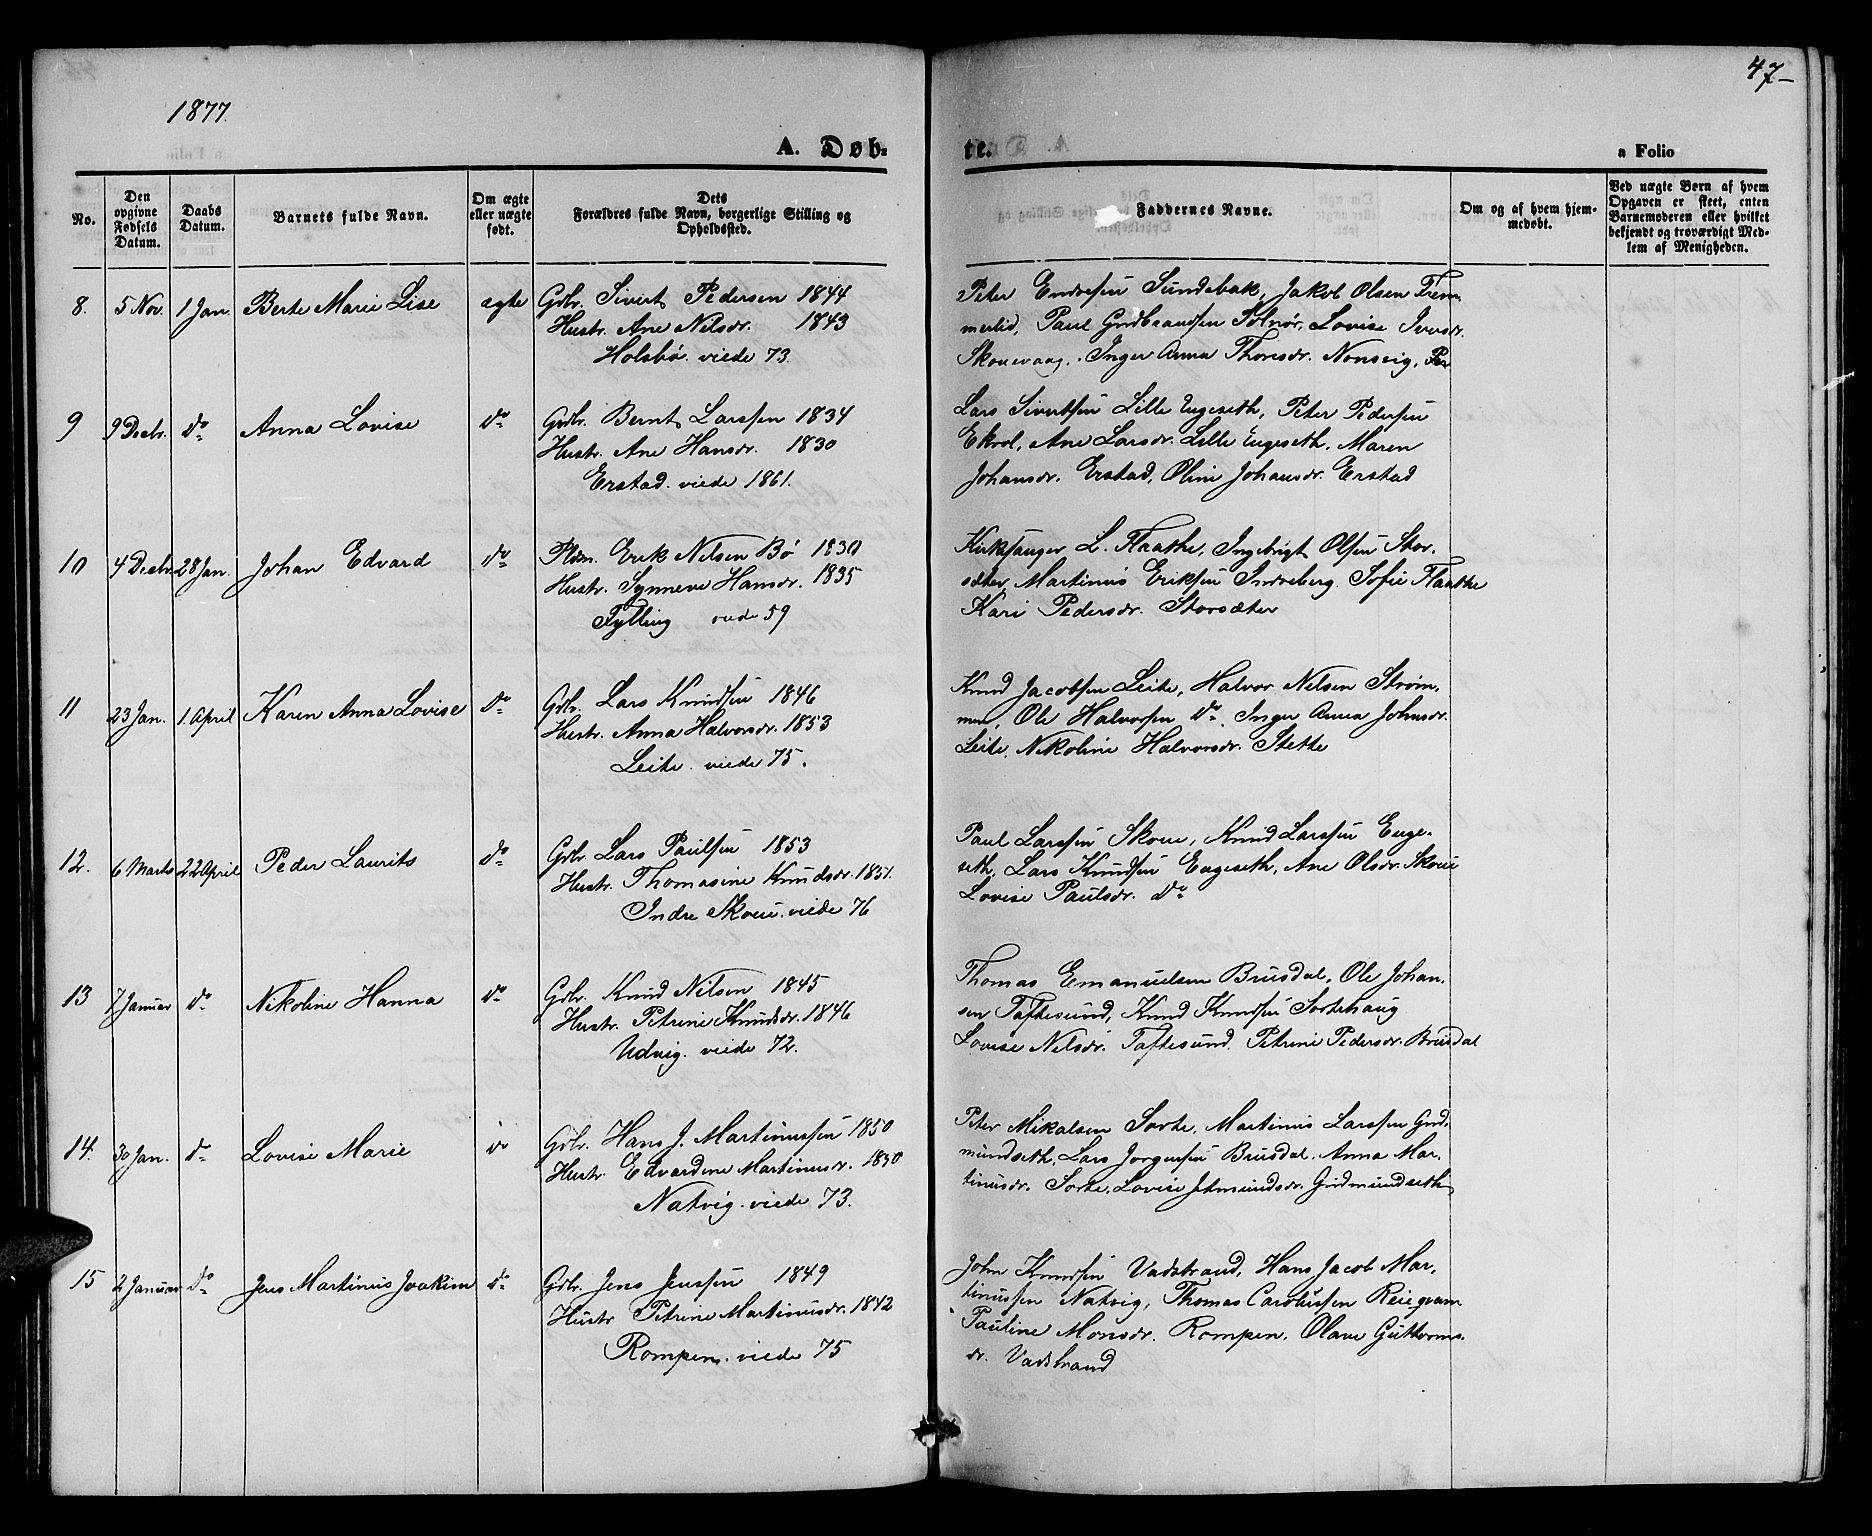 1877.
47-
A. Døb-
te.
a Folio
No.
Den opgivne Fødsels Datum.
Daabs Datum.
Barnets fulde Navn.
Om ægte eller uægte født.
Dets Forældres fulde Navn, borgerlige Stilling og Opholdssted.
Faddernes Navne.
Om og af hvem hjemmedøbt.
Ved uægte Børn af hvem Opgaven er skeet, enten Barnemoderen eller hvilket bekjendt og troværdigt Medlem af Menigheden.
8. 5 Nov. 1 Jan. Berte Marie Lise ægte Gdbr. Sivert Pedersen 1844
Hustr. Ane Nilsdr. 1843
Holsbø. viede 73.
Peter Endresen Sundsbak, Jakob Olsen Frem-
merlid, Paul Gudbrandsen Solnør, Lovise Iversdr.
Skouvaag. Inger Anna Thoresdr. Nonsvig.
9 9 Decbr. do Anna Lovise do Gdbr. Bernt Larssen 1834
Hustr. Ane Hansdr. 1830
Erstad. viede 1861.
Lars Sivertsen Lille Engeseth, Peter Pedersen
Ekrol, Ane Larsdr. Lille Engeseth, Maren
Johansdr. Erstad, Oline Johansdr. Erstad
10 4 Decbr. 28 Jan. Johan Edvard do Pldm. Erik Nilsen Bø 1830
Hustr. Synneve Hansdr. 1835
Fylling viede 59
Kirkesanger L. Flaathe, Ingebrigt Olsen Stor-
sæter, Martinus Eriksen Indreberg. Sofie Flaathe
Kari Pedersdr. Storsæter
11 23 Jan. 1. April Karen Anna Lovise do Gdbr. Lars Knudsen 1846
Hustr. Anna Halvorsdr. 1853
Leite. viede 75.
Knud Jacobsen Leite, Halvor Nilsen Strøm-
men, Ole Halvorsen do, Inger Anna Johnsdr.
Leite, Nikoline Halvorsdr. Stette
12. 6 Marts 22 April Peder Laurits do Gdbr. Lars Paulsen 1853
Hustr. Thomasine Knudsdr. 1851.
Indre Skoue. viede 76
Paul Larssen Skoue, Knud Larssen Enge-
seth, Lars Knudsen Engeseth, Ane Olsdr. Skoue
Lovise Paulsdr. do
13 7 Januar do Nikoline Hanna do Gdbr. Knud Nilsen 1845
Hustr. Petrine Knudsdr. 1846
Udvig. viede 72.
Thomas Emanuelsen Brusdal, Ole Johan-
sen Taftesund, Knud Knudsen Sortehaug
Lovise Nilsdr. Taftesund. Petrine Pedersdr. Brusdal
14. 30 Jan. do Lovise Marie do Gdbr. Hans J. Martinussen 1850
Hustr. Edvardine Martinusdr. 1830
Natvig. viede 73.
Peter Mikalsen Sorte, Martinus Larssen Gud-
mundseth, Lars Jørgensen Brusdal. Anna Mar-
tinusdr. Sorte, Lovise Amundsdr. Gudmundseth
15 2 Januar do Jens Martinus Joakim do Gdbr. Jens Jenssen 1849
Hustr Petrine Martinusdr. 1842
Rompen. viede 75
John Knudsen Vadstrand, Hans Jacob Mar-
tinussen Natvig, Thomas Carolussen Reiegram
Pauline Monsdr. Rompen, Olave Guttorms-
dr. Vadstrand